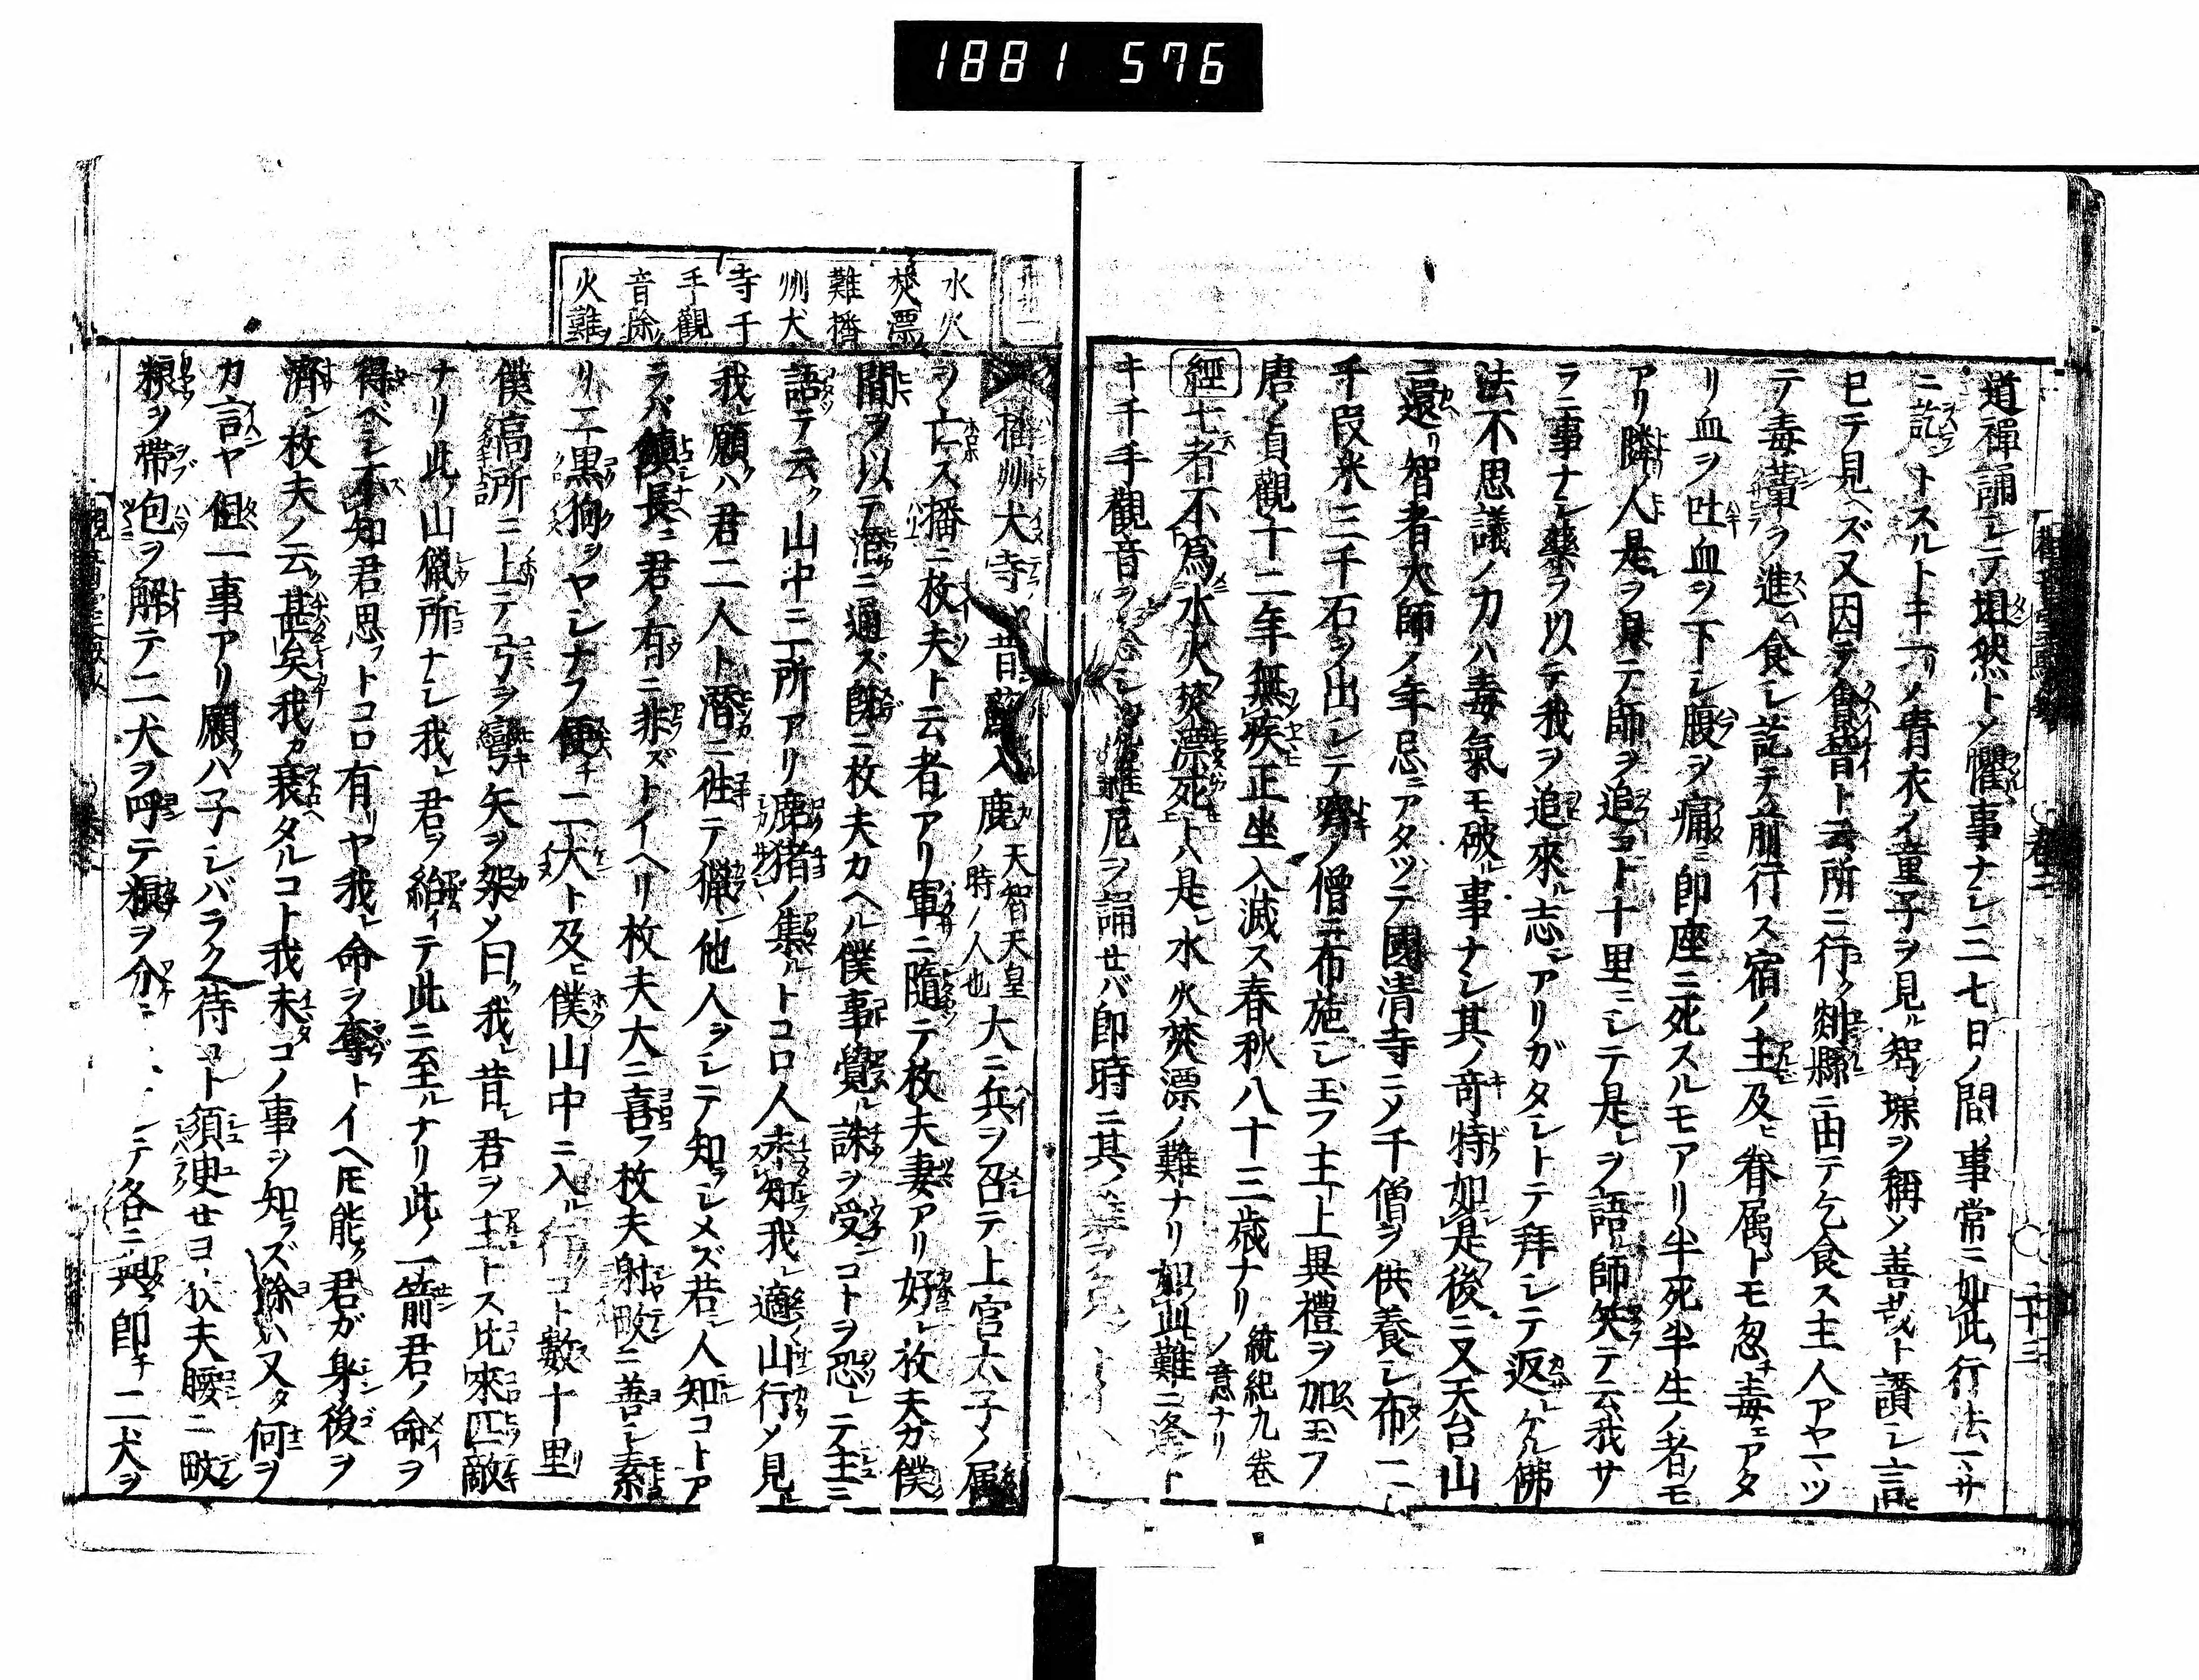 1881 576
道禪誦シテ坦然トメ懼事ナシ三七日ノ間事常ニ如此行法一マサ
ニ訖トスルトキ一リノ青衣ノ童子ヲ見ル智璪ヲ稱メ善哉ト讃シ言
已テ見ヘズ又因テ云所ニ行ク剡縣ニ由テ乞食ス主人アヤマツ
テ毒ヲ進ム食シ訖テ前行ス宿ノ主及ヒ眷属トモ忽チ毒ニアタ
リ血ヲ吐血ヲ下シ腹ヲ痛ミ即座ニ死スルモアリ半死半生ノ者モ
アリ隣ノ人是ヲ見テ師ヲ追コト十里ニシテ是レヲ語ル師笑テ云我サ
ラニ事ナシ藥ヲ以テ我ヲ追來ル志シアリガタシトテ拜シテ返シケル佛
法不思議ノ力ハ毒氣モ破ル事ナシ其ノ竒特如是後ニ又天台山
ニ還リ智者大師ノ年忌ニアタツテ國清寺ニメ千僧ヲ供養シ布二
千段米三千石ヲ出シテ齊ノ僧ニ布施シ玉フ主上異禮ヲ加ヘ玉フ
唐ノ貞觀十二年無疾正坐入滅ス春秋八十三歳ナリ 統紀九卷ノ意ナリ
經七者不為水火焚漂死トハ是レ水火焚漂ノ難ナリ如此難ニ逢ント
キ千手觀音ヲ念シ陀羅尼ヲ誦セバ即時ニ其ノ
水火
焚漂
難播
州犬
寺千
手觀
音除
火難
播州犬寺ノ昔蘇入鹿 天智天皇ノ時ノ人也 大ニ兵ヲ召テ上宮太子ノ属
ヲ亡ス播ニ枚夫ト云者アリ軍ニ隨テ枚夫妻アリ好シ枚夫カ僕
間ヲ以テ潜ニ通ズ即ニ枚夫カヘル僕事覺レ誅ヲ受ンコトヲ恐レテ主ニ
語テ云ク山中ニ一所アリ鹿猪ノ集ルトコロ人未知我レ適山行メ見ル
我レ願クハ君二人ト潜ニ徃テ猟ン他人ヲシテ知ラシメズ若シ人知コトア
ラバ鎮長ニ君ノ有ニ非ズトイヘリ枚夫大ニ喜フ枚夫射畋ニ善シ素
リ二黒狗ヲヤシナフ便チ二犬ト及ヒ僕山中ニ入ル行コト數十里
僕嵪所ニ上テ弓ヲ彎キ矢ヲ架メ曰ク我レ昔シ君ヲ主トス比來匹敵
ナリ此ノ山獵所ナシ我レ君ヲ紿イテ此ニ至ルナリ此ノ一箭君ノ命ヲ
得ベシ不知君思フトコロ有リヤ我レ命ヲ奪トイヘ𪜈能ク君ガ身後ヲ
濟ン枚夫ノ云ク甚矣我カ衰タルコト我未タコノ事ヲ知ラズ餘ハ又タ何ヲ
カ言ヤ但一事アリ願クハ子シバラク待コト須臾セヨ枚夫腰ニ畋
粮ヲ帶包ヲ解テ二犬ヲ呼テ粮ヲ分ニシテ各ニ與フ即チ二犬ヲ